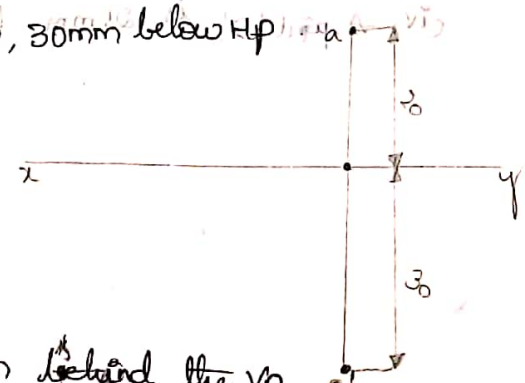 , 30mm below HP
a
20
x y
30
is behind the VP